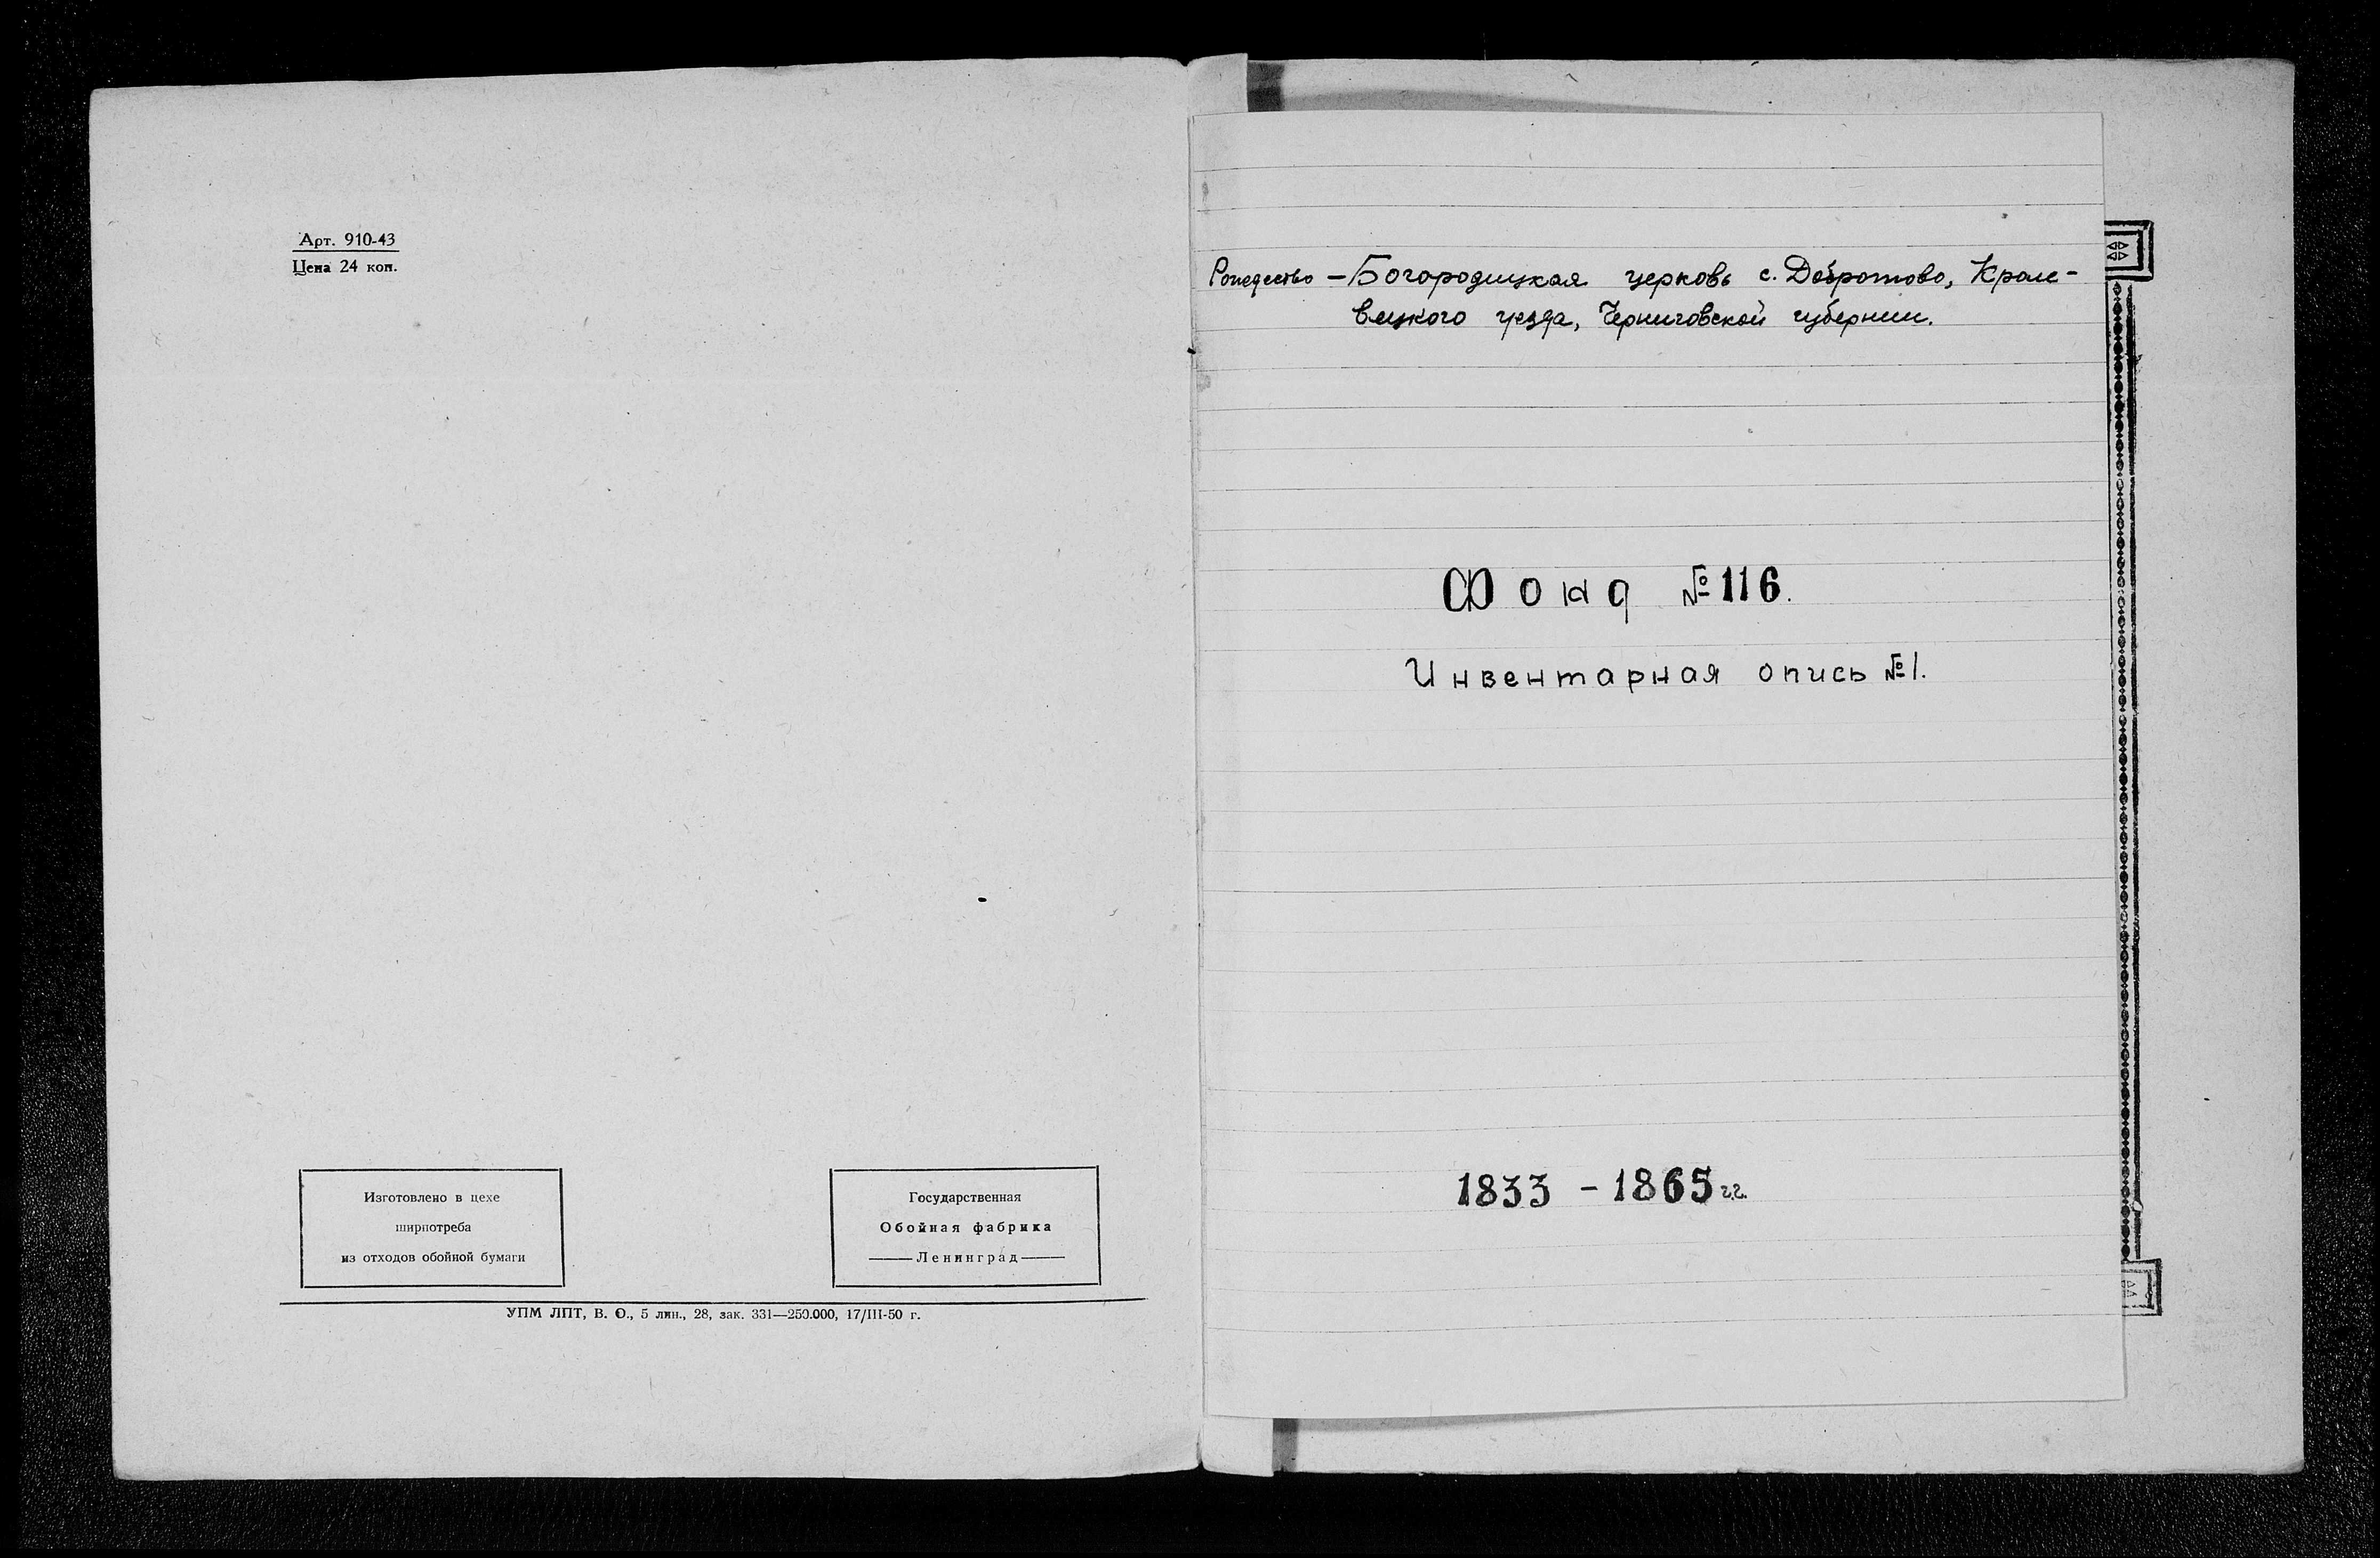 Арт. 910-43
Цена 24 коп.
Изготовлено в цехе
ширпотреба
из отходов обойной бумаги
Государственная
Обойная фабрика
Ленинград
УПМ ЛПТ, В. О., 5 лин., 28, зак. 331—250.000, 17/III-50 г.
Рождество – Богородицкая церковь с. Добротово, Кроле-
вецкого уезда, Черниговской губернии.
Фонд №116.
Инвентарная опись №1.
1833 - 1865 г.г.